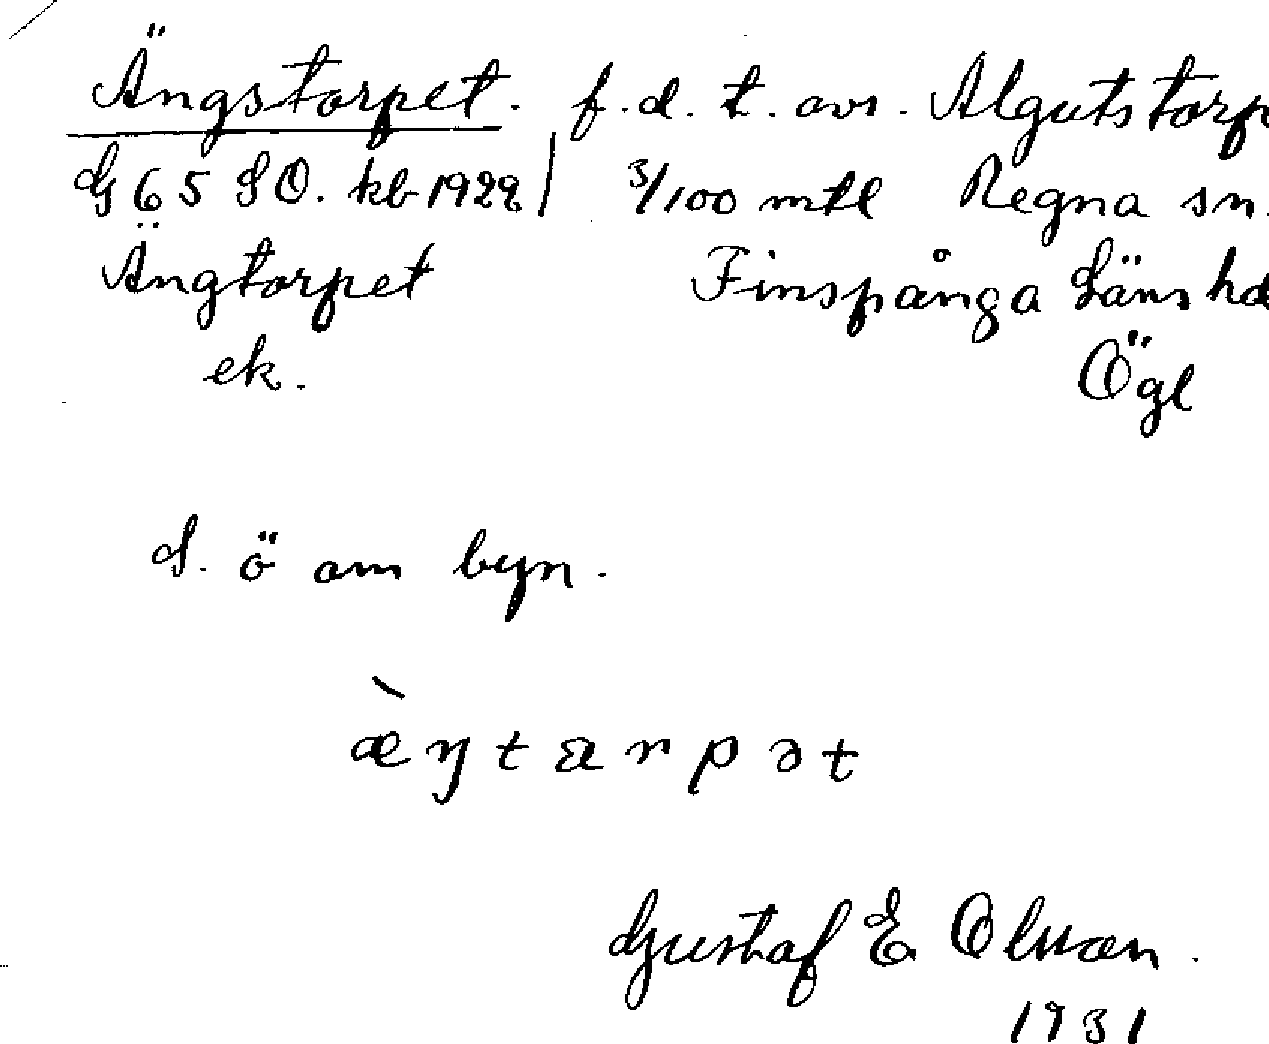 Ängstorpet. f.d. t. avs. Algutstorp
G 65 SO. kb 1929 | 3/100 mtl Regna sn.
Ängtorpet Finspånga läns hd
ek. Ögl
S. ö om byn.
æ̀ŋtarpət
Gustaf E Olsson.
1931